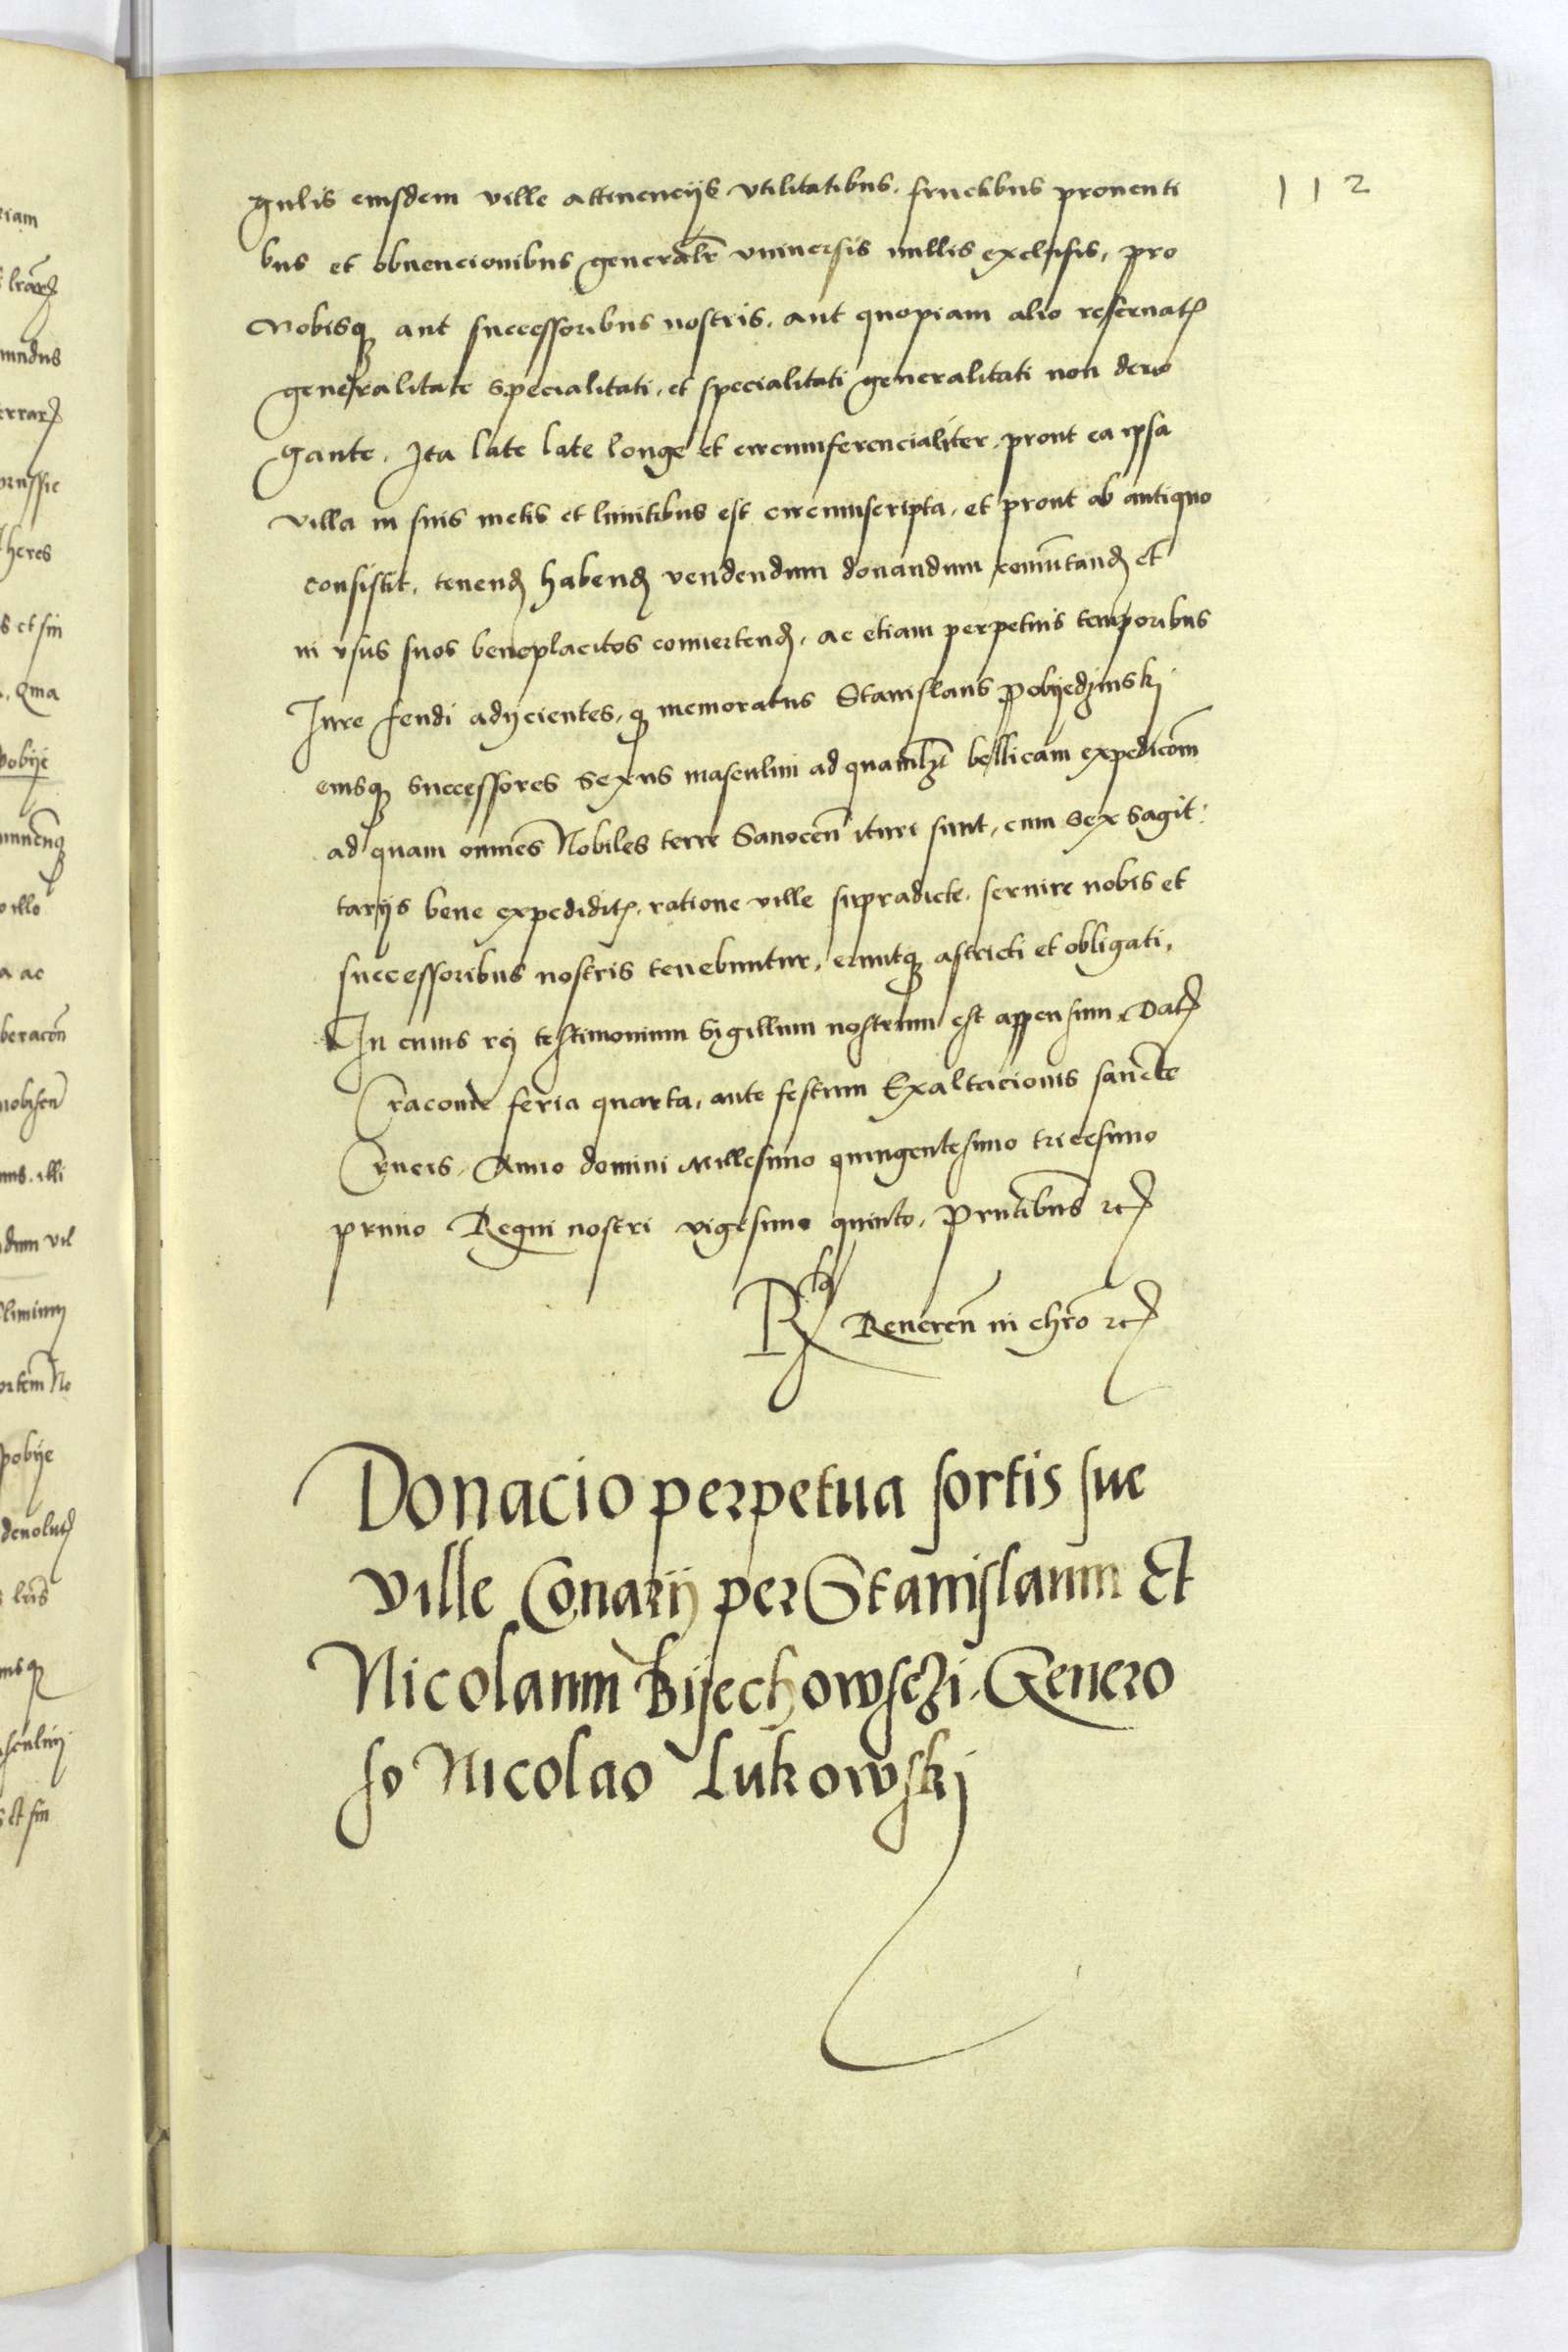 112
gulis eiusdem ville attinencijs vtilitatibus. fructibus prouenti
bus et obuencionibus generalr̄ vniuersis nullis exclusis, pro
Nobisqꝫ aut successoribus nostris. aut quopiam alio reseruatꝭ
generalitate specialitati, et specialitati generalitati non dero
gante. Ita late late longe et circumferencialiter, prout ea ipsa
villa in suis metis et limitibus est circumscripta, et prout ab antiquo
consistit, tenendꝭ habendꝭ vendendum donandum com̄utandꝭ et
in vsus suos beneplacitos conuertendꝭ, ac etiam perpetuis temporibus
Iure feudi adijcientes, qꝫ memoratus Stanislaus Pobyedzinskj
eiusqꝫ successores sexus masculini ad quamlꝫt bellicam expedicōm
ad quam omnes Nobiles terre Sanoceñ ituri sunt, cum sex sagit:
tarijs bene expediditꝭ, ratione ville supradicte. seruire nobis et
successoribus nostris tenebuntur, eruntqꝫ astricti et obligati.
In cuius rej testimonium Sigillum nostrum est appensum. Datꝭ
Cracouie feria quarta, ante festum Exaltacionis sancte
Crucis, Anno domini Millesimo quingentesimo tricesimo
primo Regni nostri vigesimo quinto. Pñtibus ꝛcꝭ
Rlꝭ Reuereñ in chr̄o ꝛcꝭ
Donacio perpetua sortis sue
ville Conarij per Stanislaum Et
Nicolaum Byechowsczi. Genero
so Nicolao Lukowskj